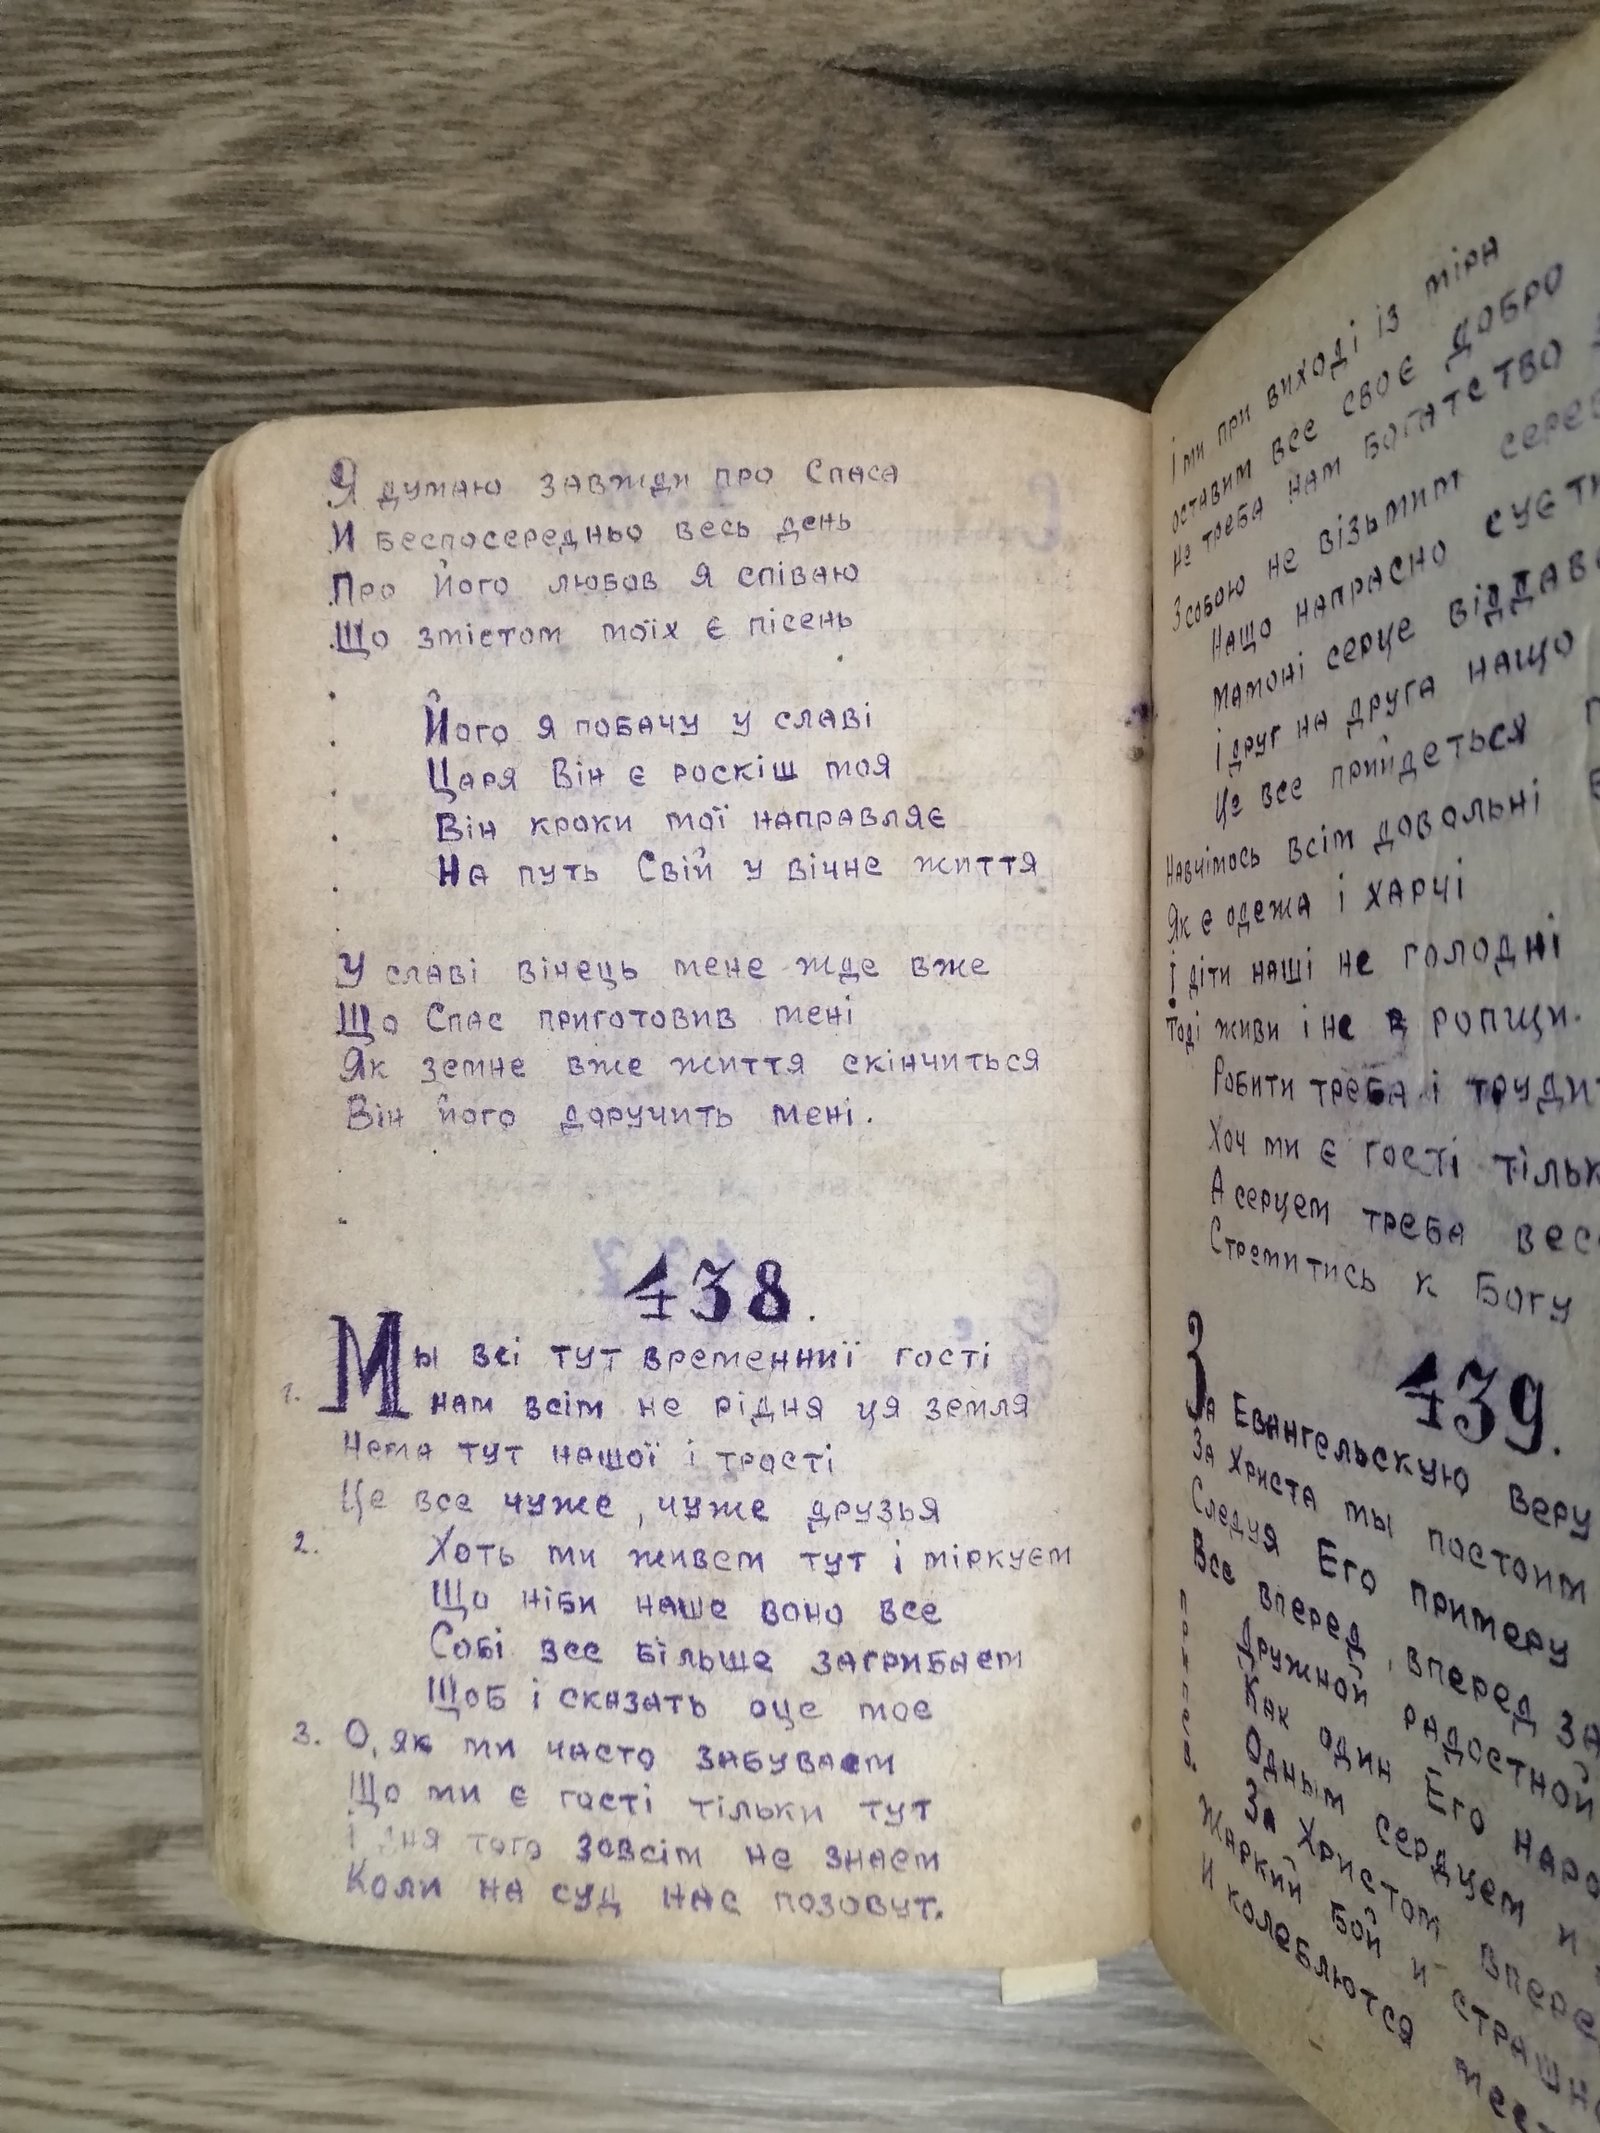 Я думаю завжди про Спаса
И беспосередньо весь день
Про Його любов я співаю
Що змістом моїх є пісень
Його я побачу у славі
Царя Він є роскіш моя
Він кроки мої направляє
На путь Свій у вічне життя
У славі вінець мене жде вже
Що Спас приготовив мені
Як земне вже життя скінчиться
Він його доручить мені.
438.
1. Мы всі тут временниї гості
нам всім не рідня ця земля
Нема тут нашої і трості
Це все чуже, чуже друзья
2. Хоть ми живем тут і міркуєм
Що ніби наше воно все
Собі все більше загрибаєм
Щоб і сказать оце моє
3. О, як ми часто забуваєм
Що ми є гості тільки тут
і дня того зовсім не знаєм
Коли на суд нас позовут.
І ми при виході із міра
оставим все своє добро
Не треба нам богатство
Зсобою не візьмим
Нащо напрасно
мамоні серце
і друг на друга нащо
Це все прийдеться
Навчімось всім довольні
Як є одежа і харчі
І діти наші не голодні
Тоді живи і не в ропщи.
Робити треба і
Хоч ми є гості
А серцем треба
Стремитись к Богу
439.
За Евангельскую веру
За Христа мы постоим
Следуя Его примеру
Все вперед, вперед за
припев:
Дружной радостной
Как один Его
Одным сердцем и
За Христом
Жаркий бой и
И колеблются